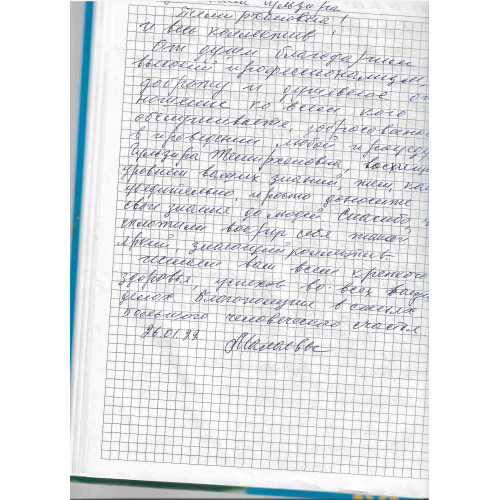 Гульзира
Темирхановна!
и весь коллектив!
От души благодарим
высокий профессионализм,
доброту и душевное от
ношение ко всем кого
обслуживаете,
в проведении любой процедур
Гульзира Темирхановна,
уровнем ваших знаний,
просто доносите
свои знания до людей. Спасибо,
сплотили вокруг себя такой
яркий, знающий коллектив
Желаем вам всем крепкого
здоровья успехов во всех ваших
делах. Благополучия в семьях
Большого человеческого счастья
26.01.22.